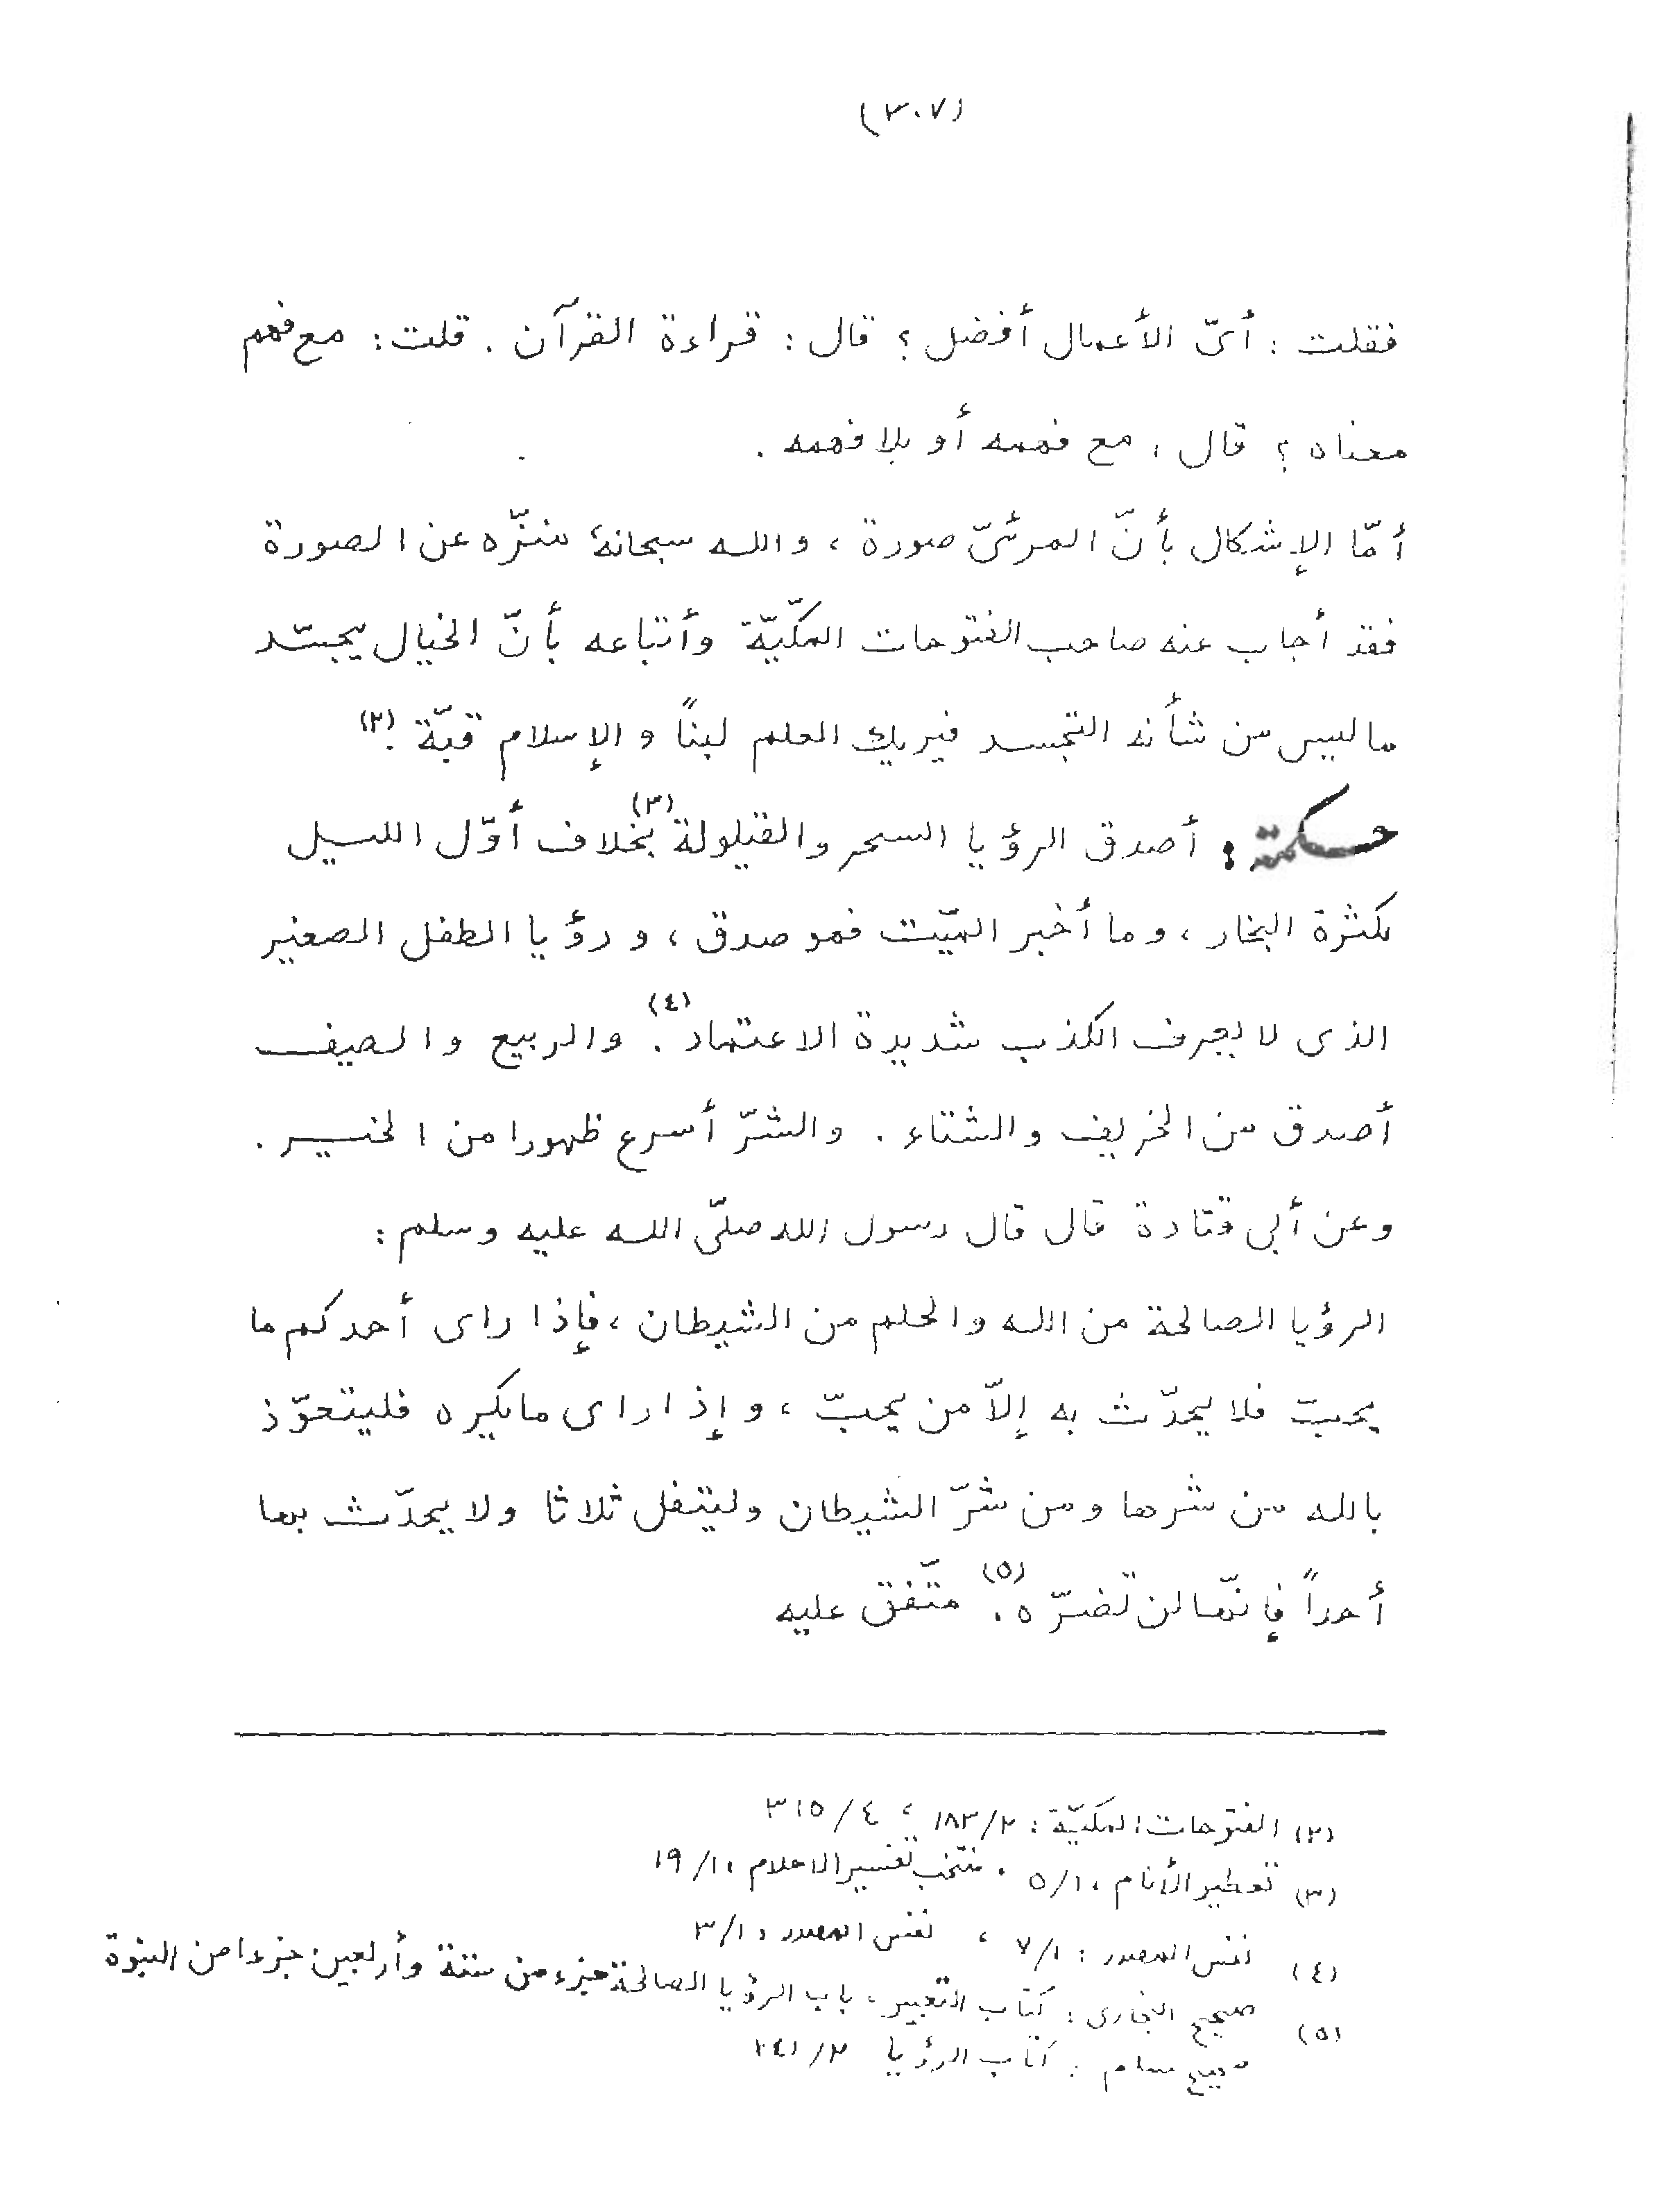 (٣٠٧)
فقلت : أىّ الأعمال أفضل ؟ قال : قراءة القرآن . قلت : مع فهم
معناه ؟ قال : مع فهمه أو بلا فهمه .
أمّا الإشكال بأنّ المرئىّ صورة ، والله سبحانهٗ منزّه عن الصورة
فقد أجاب عنه صاحب الفتوحات المكّيّة وأتباعه بأنّ الخيال يجسّد
ما ليس من شأنه التجسد فيريك العلم لبناً و الإسلام قبّة . (٢)
حكمة : أصدق الرؤيا السحر والقيلولة (٣) بخلاف أوّل الليل
لكثرة البخار ، وما أخبر الميّت فهو صدق ، ورؤيا الطفل الصغير
الذى لا يعرف الكذب شديدة الاعتماد (٤) . والربيع والصيف
أصدق من الخريف والشتاء . والشرّ أسرع ظهورا من الخير .
وعن أبى قتادة قال قال رسول الله صلّى الله عليه وسلم :
الرؤيا الصالحة من الله والحلم من الشيطان ، فإذا راى أحدكم ما
يحبّ فلا يحدّث به إلاّ من يحبّ ، وإذا راى ما يكره فليتعوّذ
بالله من شرها ومن شرّ الشيطان وليتفل ثلاثا ولا يحدّث بها
أحداً فإنّها لن تضرّه (٥) . متّفق عليه
(٢) الفتوحات المكيّة : ١٨٣/٢ ، ٣١٥/٤
(٣) تعطير الأنام ، ٥/١ ، منتخب تفسير الاحلام ، ١٩/١
(٤) نفس المصدر : ٧/١ ، نفس المصدر ، ٣/١
(٥) صحيح البخارى : كتاب التعبير ، باب الرؤيا الصالحة جزء من ستة وأربعين جزءا من النبوة
صحيح مسلم : كتاب الرؤيا ٢٤١/٢